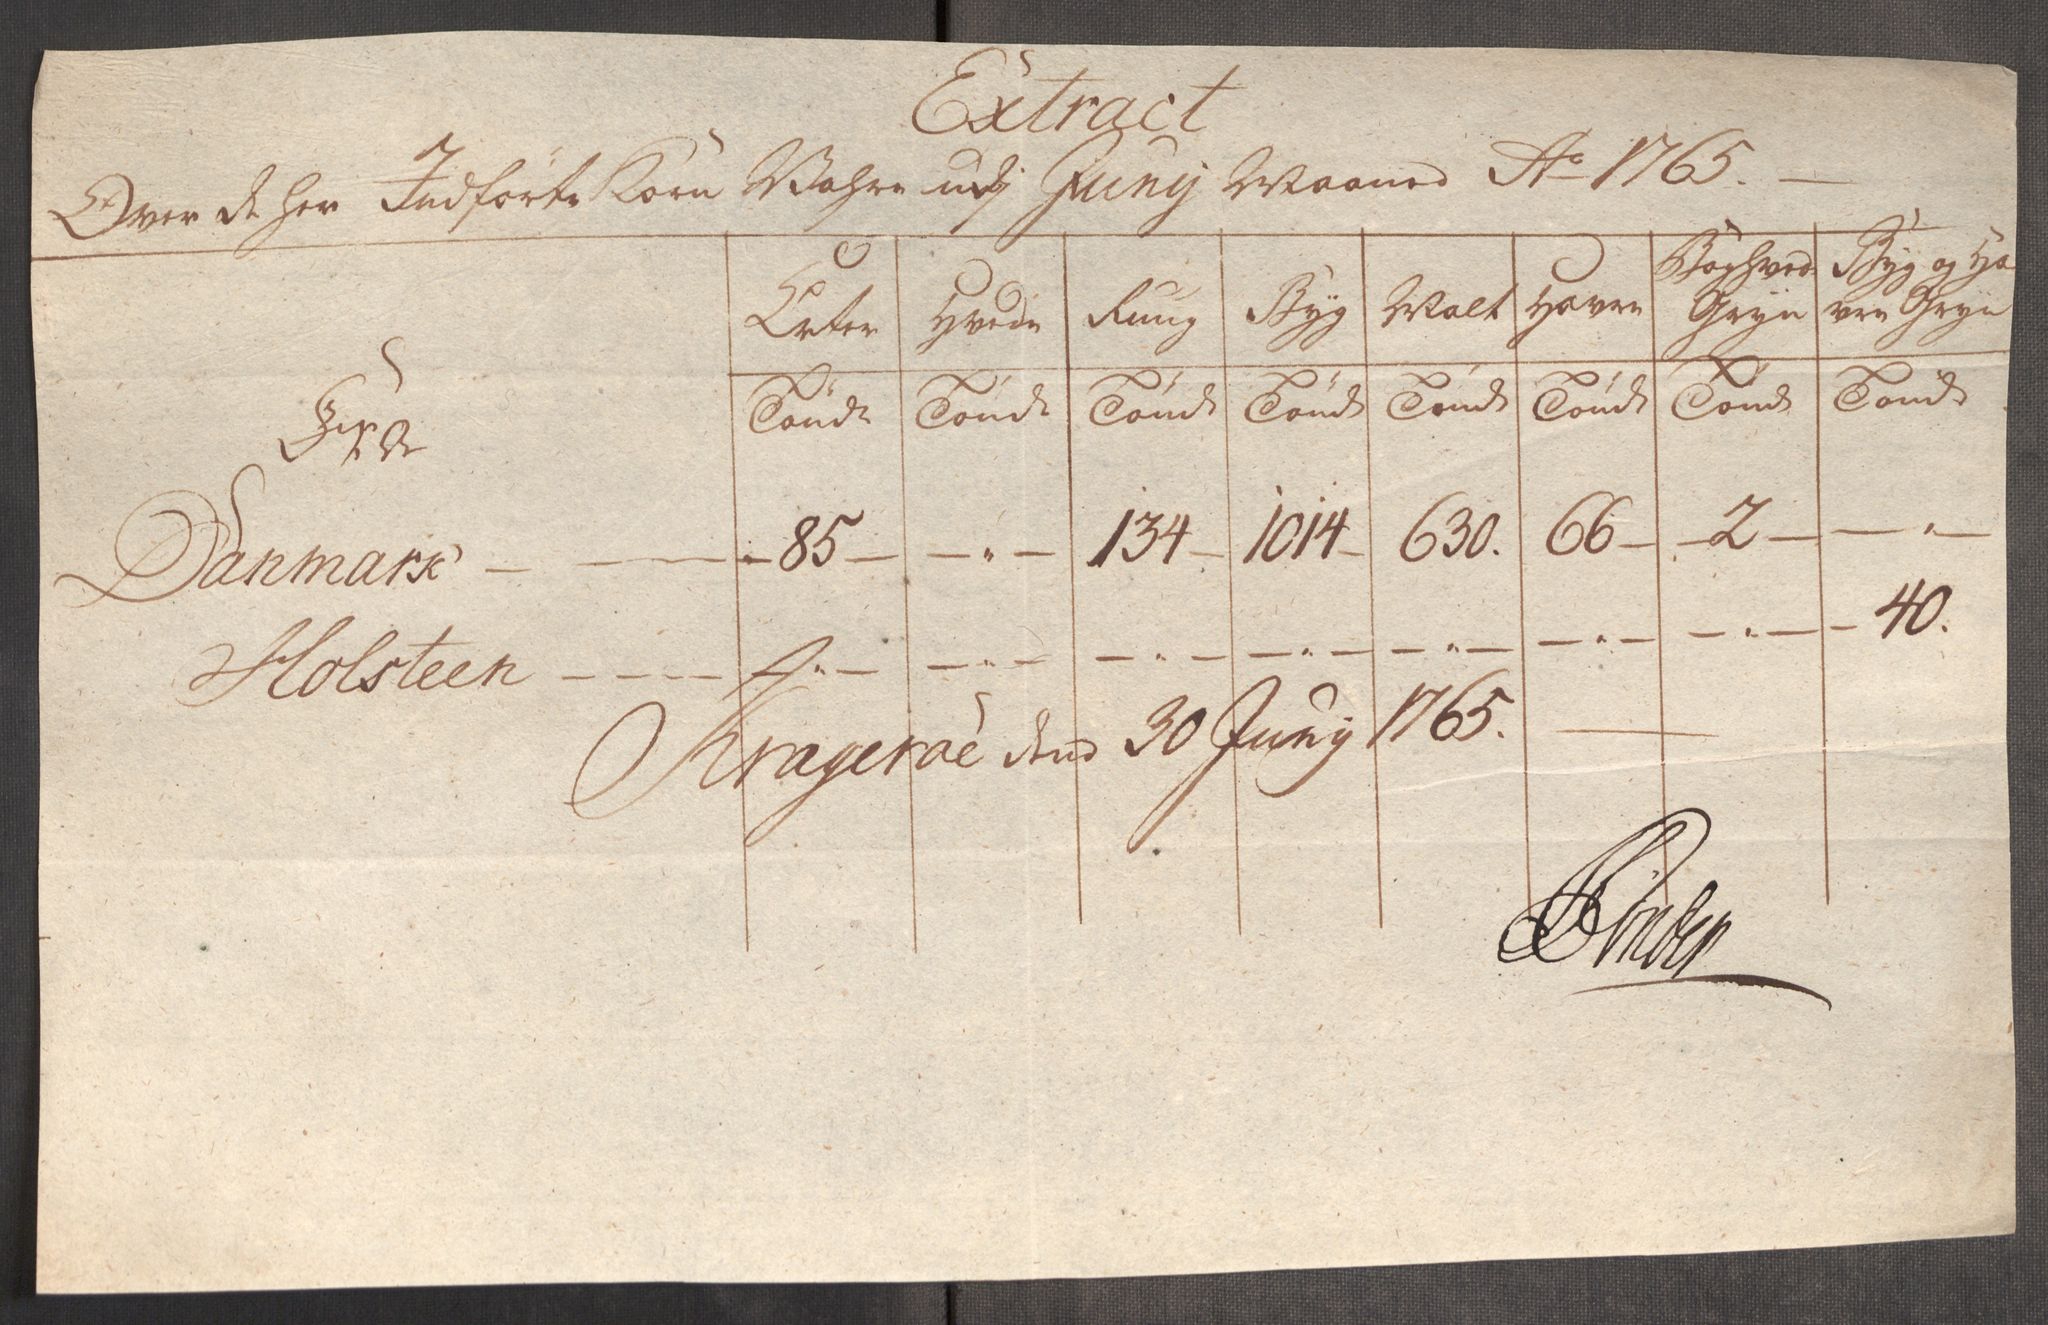 Extract
Over de her Indförte Korn Wahre udj Junij Maaned Ao 1765. —
Erter Hvede Rung Byg Malt Havre Boghved Gryn Byg og Ha vre Gryn
Fra Tönde Tönde Tönde Tönde Tönde Tönde Tönde Tönde
Danmark — — 85 — — " — 134 — 1014 — 630. 66 — — 2 — — " —
Holsteen — — " — — " — — " — — " — — " — — " — — " — — 40.
Krageröe dend 30 Junij 1765. —